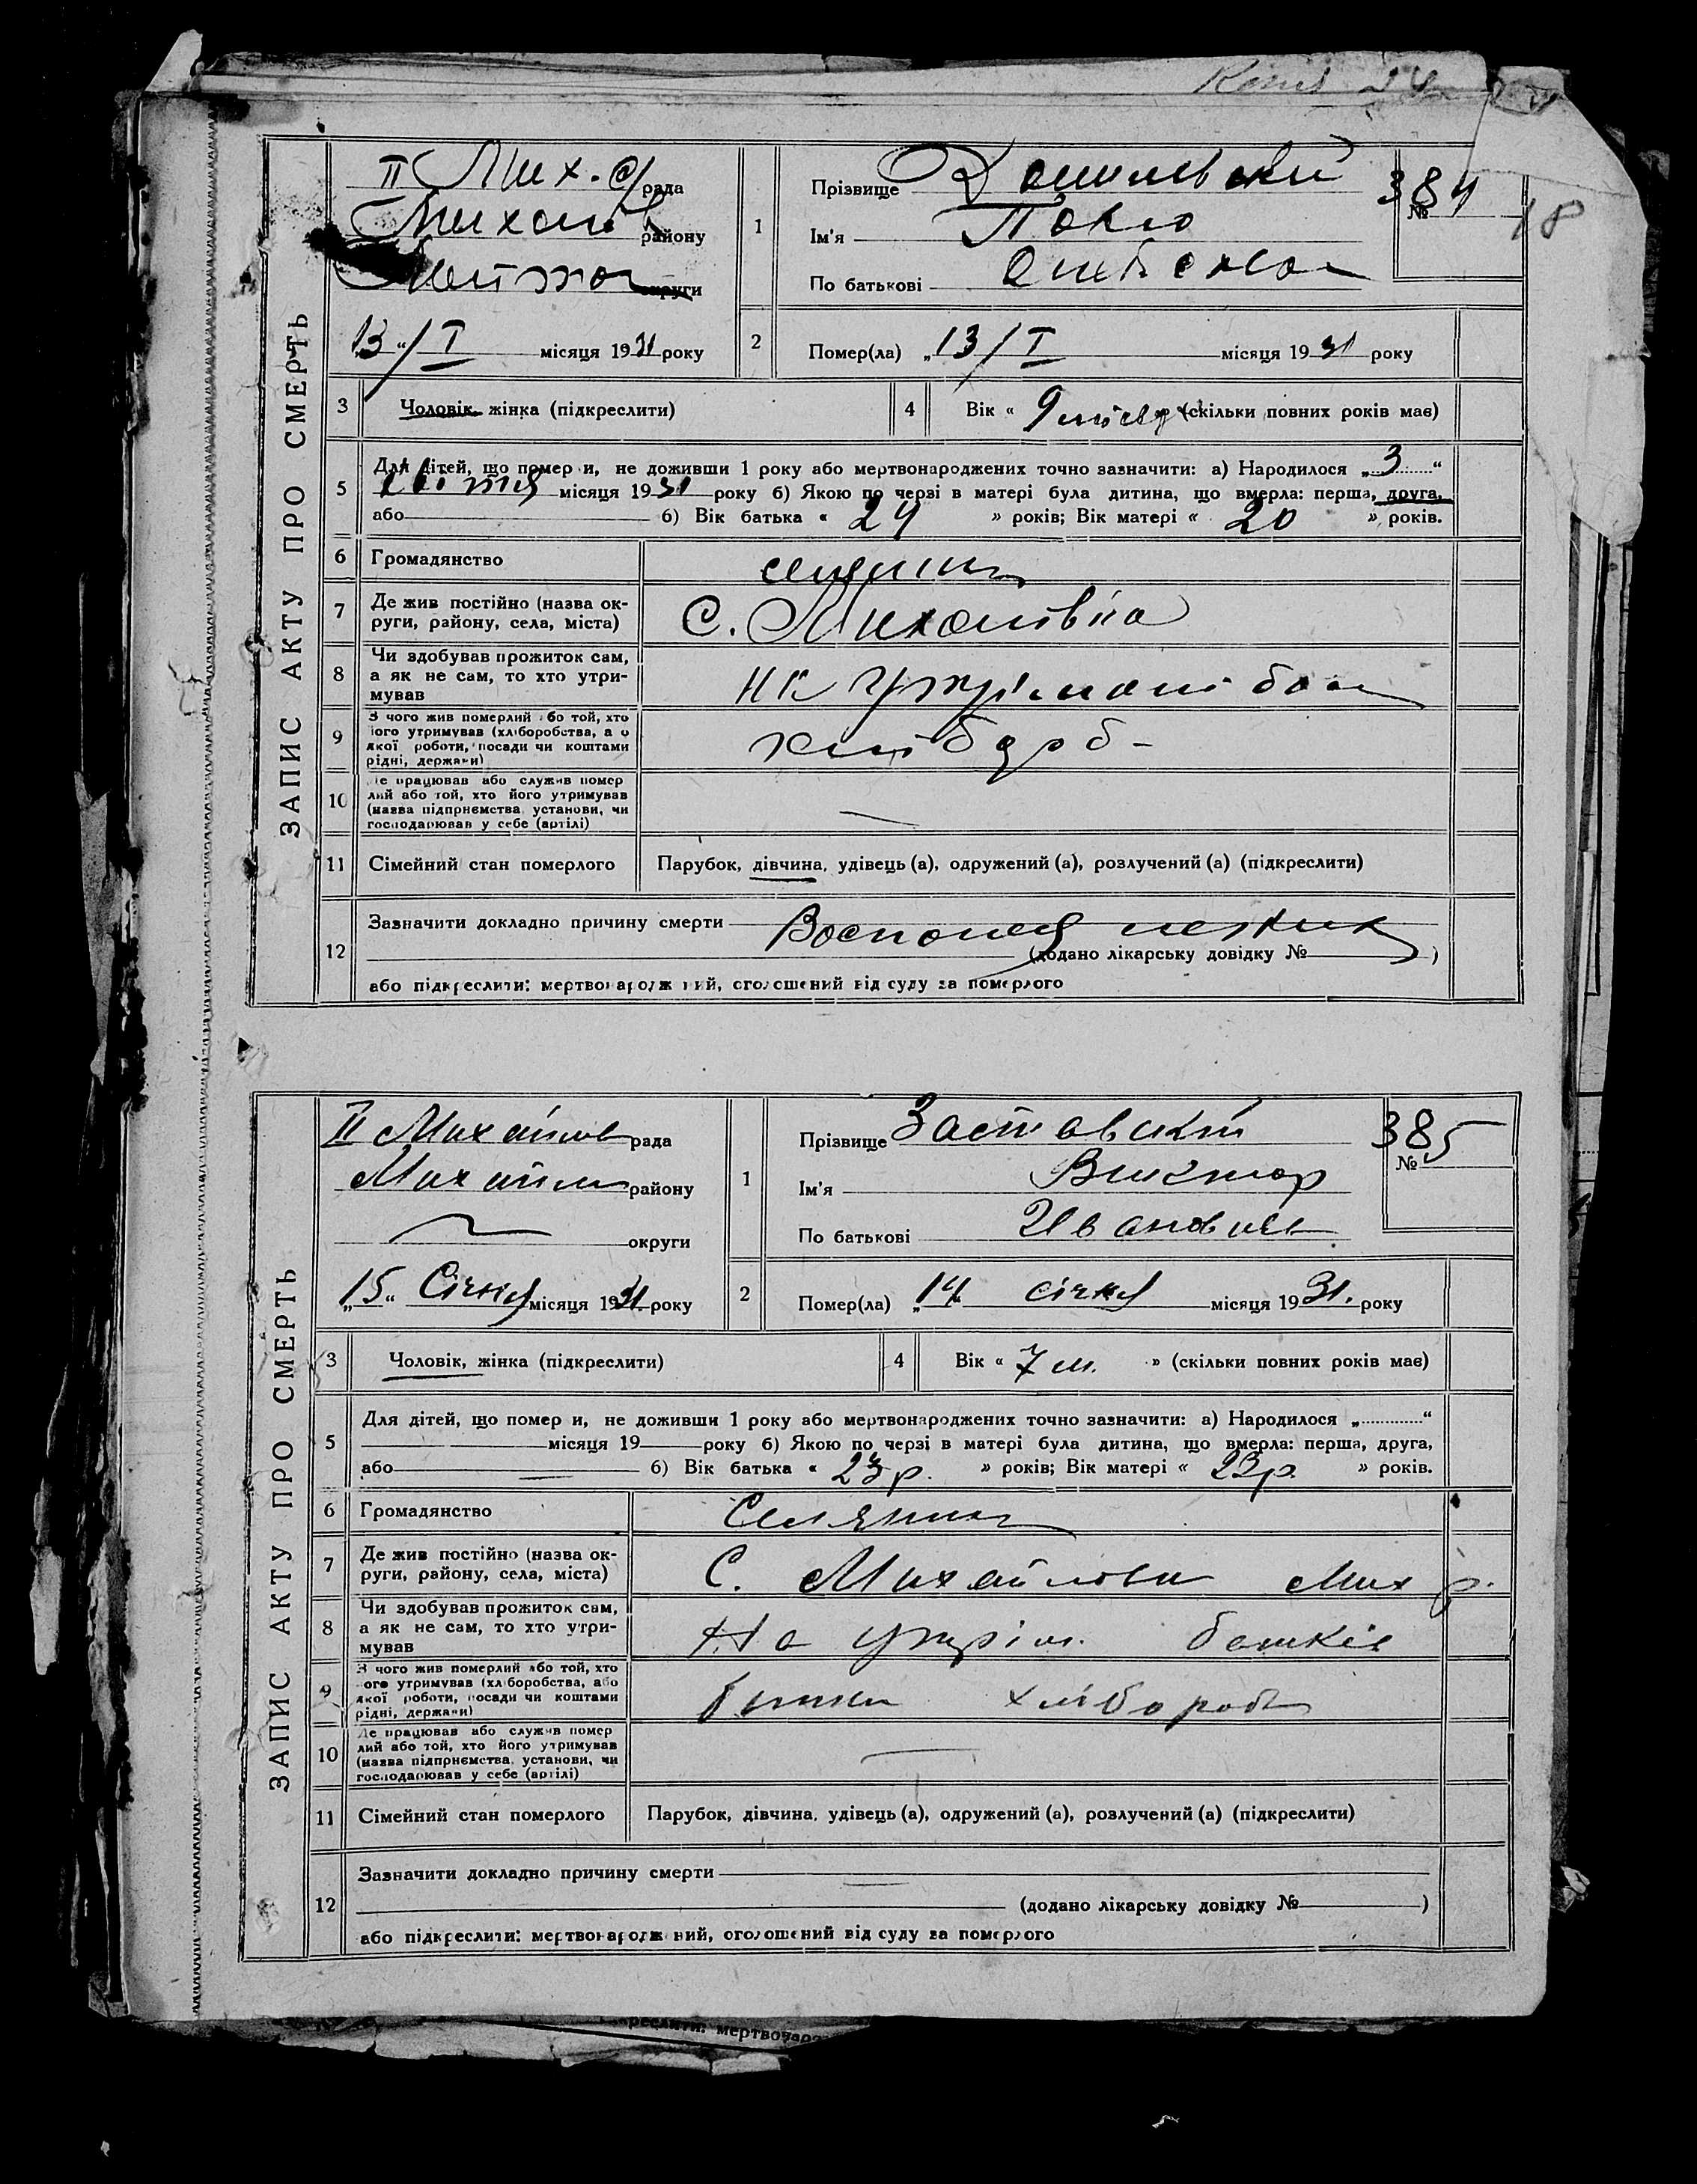 ЗАПИС АКТУ ПРО СМЕРТЬ
II Мих. с/рада
району
округи
13/I місяця 1931 року
1
Прізвище
Ім'я Павло
По батькові
№ 384
18
2
Помер(ла) „13/I місяця 1931 року
3
Чоловік, жінка (підкреслити)
4
Вік « 9 місяц » (скільки повних років має)
5
Для дітей, що померли, не доживши 1 року або мертвонароджених точно зазначити: а) Народилося „3“
місяця 1931 року б) Якою по черзі в матері була дитина, що вмерла: перша, друга,
або б) Вік батька « 24 » років; Вік матері « 20 » років.
6
Громадянство
селянин
7
Де жив постійно (назва ок-
руги, району, села, міста)
С. Михайлівка
8
Чи здобував прожиток сам,
а як не сам, то хто утри-
мував
9
З чого жив померлий або той, хто
його утримував (хліборобства, або
якої роботи, посади чи коштами
рідні, держави)
хлібороб-
10
Де працював або служив помер
лий або той, хто його утримував
(назва підприємства, установи, чи
господарював у себе (артілі)
11
Сімейний стан померлого
Парубок, дівчина, удівець (а), одружений (а), розлучений (а) (підкреслити)
12
Зазначити докладно причину смерти
(додано лікарську довідку № )
або підкреслити: мертвонароджений, оголошений від суду за померлого
ЗАПИС АКТУ ПРО СМЕРТЬ
II Михайлов рада
Михайлів району
округи
„15“ Січня місяця 1931 року
1
Прізвище Заставский
Ім'я Виктор
По батькові Иванович
№ 385
2
Помер(ла) „14“ січня місяця 1931. року
3
Чоловік, жінка (підкреслити)
4
Вік « 7 м. » (скільки повних років має)
5
Для дітей, що померли, не доживши 1 року або мертвонароджених точно зазначити: а) Народилося „ “
місяця 19 року б) Якою по черзі в матері була дитина, що вмерла: перша, друга,
або б) Вік батька « 23 р. » років; Вік матері « 23 р. » років.
6
Громадянство
Селянин
7
Де жив постійно (назва ок-
руги, району, села, міста)
С. Михайловка Мих р.
8
Чи здобував прожиток сам,
а як не сам, то хто утри-
мував
На утрім. батьків
9
З чого жив померлий або той, хто
його утримував (хліборобства, або
якої роботи, посади чи коштами
рідні, держави)
хлібороб
10
Де працював або служив помер
лий або той, хто його утримував
(назва підприємства, установи, чи
господарював у себе (артілі)
11
Сімейний стан померлого
Парубок, дівчина, удівець (а), одружений (а), розлучений (а) (підкреслити)
12
Зазначити докладно причину смерти
(додано лікарську довідку № )
або підкреслити: мертвонароджений, оголошений від суду за померлого